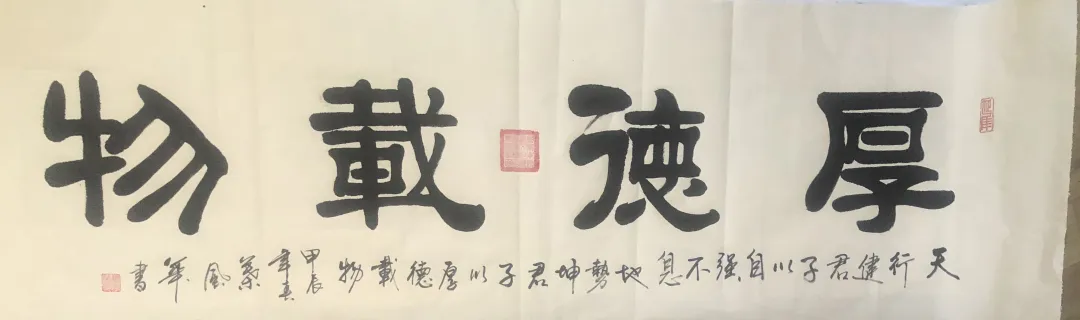 厚德載物
天行健君子以自强不息地勢坤君子以厚德載物
甲辰年春
風軍書